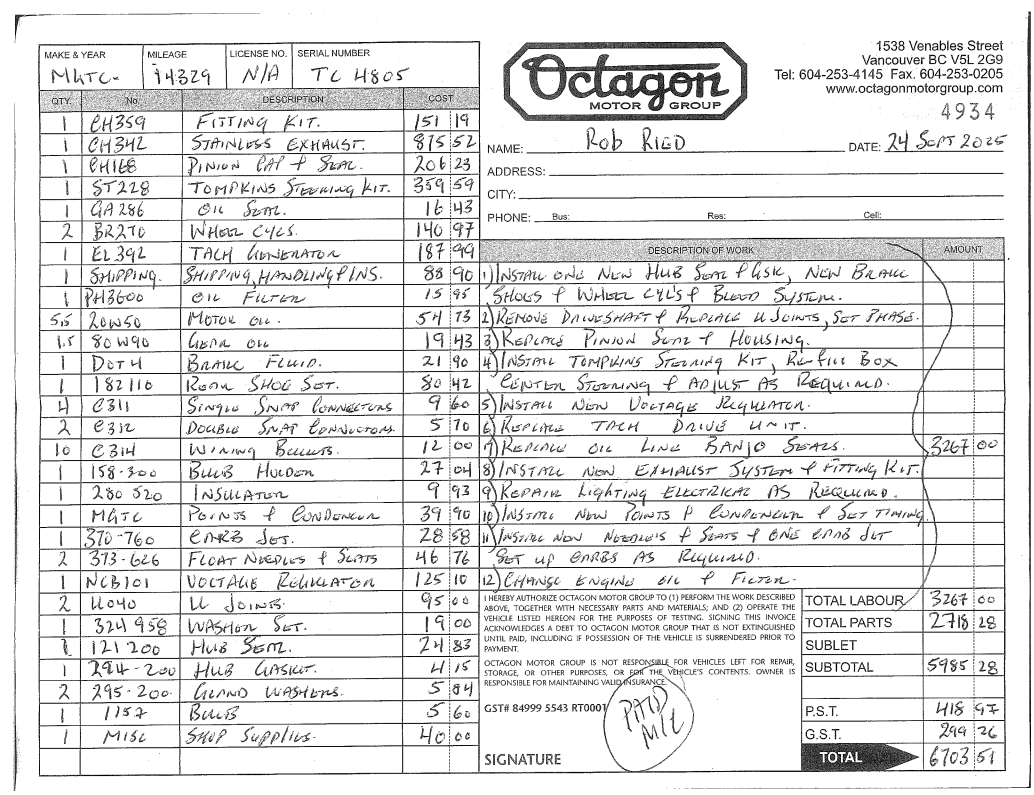 MAKE & YEAR MILEAGE LICENSE NO. SERIAL NUMBER
MGTC- 14329 N/A TC 4805
QTY. No. DESCRIPTION COST
1 CH359 FITTING KIT. 151 19
1 CH342 STAINLESS EXHAUST. 875 52
1 CH168 PINION CAP & SEAL. 206 23
1 ST228 TOMPKINS STEERING KIT. 359 59
1 GA286 OIL SEAL. 16 43
2 BR270 WHEEL CYLS. 140 97
1 EL392 TACH GENERATOR 187 99
1 SHIPPING. SHIPPING, HANDLING & INS. 88 90
1 PH3600 OIL FILTER 15 95
5.5 20W50 MOTOR OIL. 54 73
1.5 80W90 GEAR OIL 19 43
1 DOT4 BRAKE FLUID. 21 90
1 182110 REAR SHOE SET. 80 42
4 C311 SINGLE SNAP CONNECTORS 9 60
2 C312 DOUBLE SNAP CONNECTORS. 5 70
10 C314 WIRING BULLETS. 12 00
1 158-300 BULB HOLDER 27 04
1 280 520 INSULATOR 9 93
1 MGTC POINTS & CONDENCER 39 90
1 370-760 CARB JET. 28 58
2 373-626 FLOAT NEEDLES & SEATS 46 76
1 NCB101 VOLTAGE REGULATOR 125 10
2 U040 U JOINTS. 95 00
1 324 958 WASHER SET. 19 00
1 121 200 HUB SEAL. 24 83
1 294-200 HUB GASKET. 4 15
2 295-200- GLAND WASHERS. 5 84
1 1157 BULB 5 60
1 MISC SHOP SUPPLIES. 40 00
Octagon
MOTOR GROUP
1538 Venables Street
Vancouver BC V5L 2G9
Tel: 604-253-4145 Fax. 604-253-0205
www.octagonmotorgroup.com
4934
NAME: Rob RIED DATE: 24 SEPT 2025
ADDRESS:
CITY:
PHONE: Bus: Res: Cell:
DESCRIPTION OF WORK AMOUNT
1) INSTALL ONE NEW HUB SEAL & GSK, NEW BRAKE
SHOES & WHEEL CYL'S & BLEED SYSTEM.
2) REMOVE DRIVESHAFT & REPLACE U JOINTS, SET PHASE.
3) REPLACE PINION SEAL & HOUSING.
4) INSTALL TOMPKINS STEERING KIT, RE-FILL BOX
CENTER STEERING & ADJUST AS REQUIRED.
5) INSTALL NEW VOLTAGE REGULATOR.
6) REPLACE TACH DRIVE UNIT.
7) REPLACE OIL LINE BANJO SEALS. 3267 00
8) INSTALL NEW EXHAUST SYSTEM & FITTING KIT.
9) REPAIR LIGHTING ELECTRICAL AS REQUIRED.
10) INSTALL NEW POINTS & CONDENCER & SET TIMING.
11) INSTALL NEW NEEDLE'S & SEATS & ONE CARB JET
SET UP CARBS AS REQUIRED.
12) CHANGE ENGINE OIL & FILTER.
I HEREBY AUTHORIZE OCTAGON MOTOR GROUP TO (1) PERFORM THE WORK DESCRIBED
ABOVE, TOGETHER WITH NECESSARY PARTS AND MATERIALS; AND (2) OPERATE THE
VEHICLE LISTED HEREON FOR THE PURPOSES OF TESTING. SIGNING THIS INVOICE
ACKNOWLEDGES A DEBT TO OCTAGON MOTOR GROUP THAT IS NOT EXTINGUISHED
UNTIL PAID, INCLUDING IF POSSESSION OF THE VEHICLE IS SURRENDERED PRIOR TO
PAYMENT.
OCTAGON MOTOR GROUP IS NOT RESPONSIBLE FOR VEHICLES LEFT FOR REPAIR,
STORAGE, OR OTHER PURPOSES, OR FOR THE VEHICLE'S CONTENTS. OWNER IS
RESPONSIBLE FOR MAINTAINING VALID INSURANCE.
GST# 84999 5543 RT0001
PAID
M/C
SIGNATURE
TOTAL LABOUR 3267 00
TOTAL PARTS 2718 28
SUBLET
SUBTOTAL 5985 28
P.S.T. 418 97
G.S.T. 299 26
TOTAL 6703 51